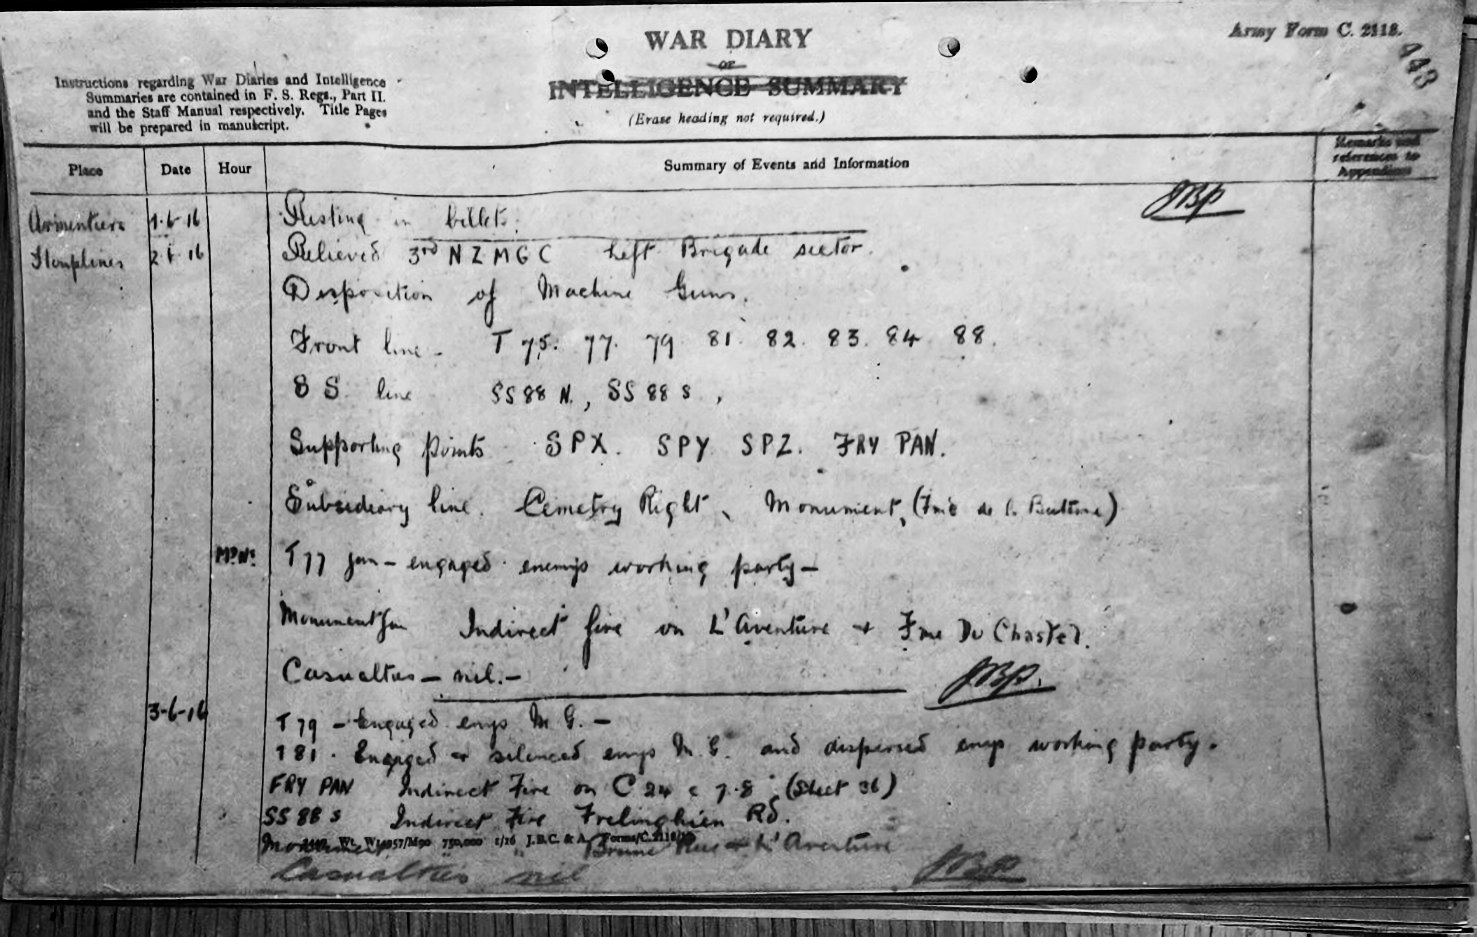 Army Form C. 2118.
143
WAR DIARY
OF
INTELLIGENCE SUMMARY
(Erase heading not required.)
Instructions regarding War Diaries and Intelligence
Summaries are contained in F. S. Regs., Part II.
and the Staff Manual respectively. Title Pages
will be prepared in manuscript.
Place Date Hour Summary of Events and Information Remarks and references to Appendices
Armentiers 1.6.16 Resting in billets. JBP
Houplines 2.6.16 Relieved 3rd NZMGC Left Brigade sector.
Disposition of Machine Guns.
Front line - T 75. 77. 79 81. 82. 83. 84. 88.
S S line SS 88 N., SS 88 S,
Supporting Points SPX. SPY SPZ. FRY PAN.
Subsidiary line. Cemetry Right, Monument, (Fme de la Butterne)
T77 gun - engaged enemys working party -
Monument gun Indirect fire on L'Aventure + Fme Du Chastel.
Casualties - nil. - JBP.
3-6-16 T79 - Engaged enys M.G. -
T81. Engaged + silenced enys M.G. and dispersed enys working party.
FRY PAN Indirect Fire on C 24 c 7.8 (Sheet 36)
SS 88 S Indirect Fire Frelinghien Rd.
Monument " " Brune Rue + L'Aventure
Wt. W14957/M90 750,000 1/16 J.B.C. & A. Forms/C.2118/12
Casualties nil JBP